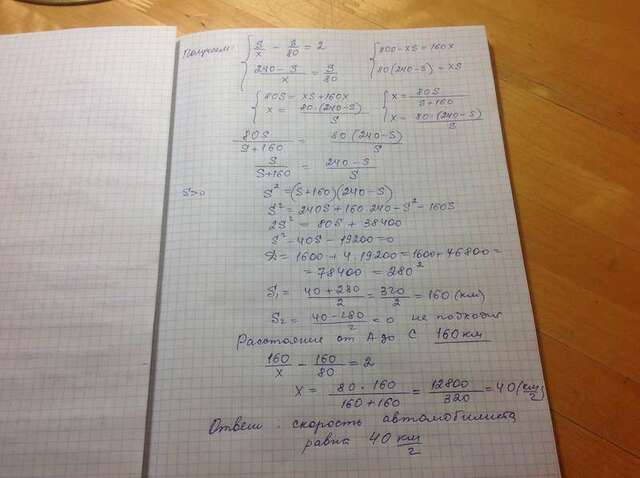 Получаем: { S/x - S/80 = 2 { 80S-xS=160x
{ 240-S/x = S/80 { 80(240-S)=xS
{ 80S=xS+160x { x = 80S/S+160
{ x = 80·(240-S)/S { x = 80·(240-S)/S
80S/S+160 = 80(240-S)/S
S/S+160 = 240-S/S
S>0 S²=(S+160)(240-S)
S²=240S+160·240-S²-160S
2S²=80S+38400
S²-40S-19200=0
D=1600+4·19200=1600+76800=
=78400 =280²
S₁= 40+280/2 = 320/2 = 160 (км)
S₂= 40-280/2 <0 не подходит
Расстояние от А до С 160 км
160/x - 160/80 = 2
x = 80·160/160+160 = 12800/320 = 40 (км/г)
Ответ: скорость автомобилиста
равна 40 км/г